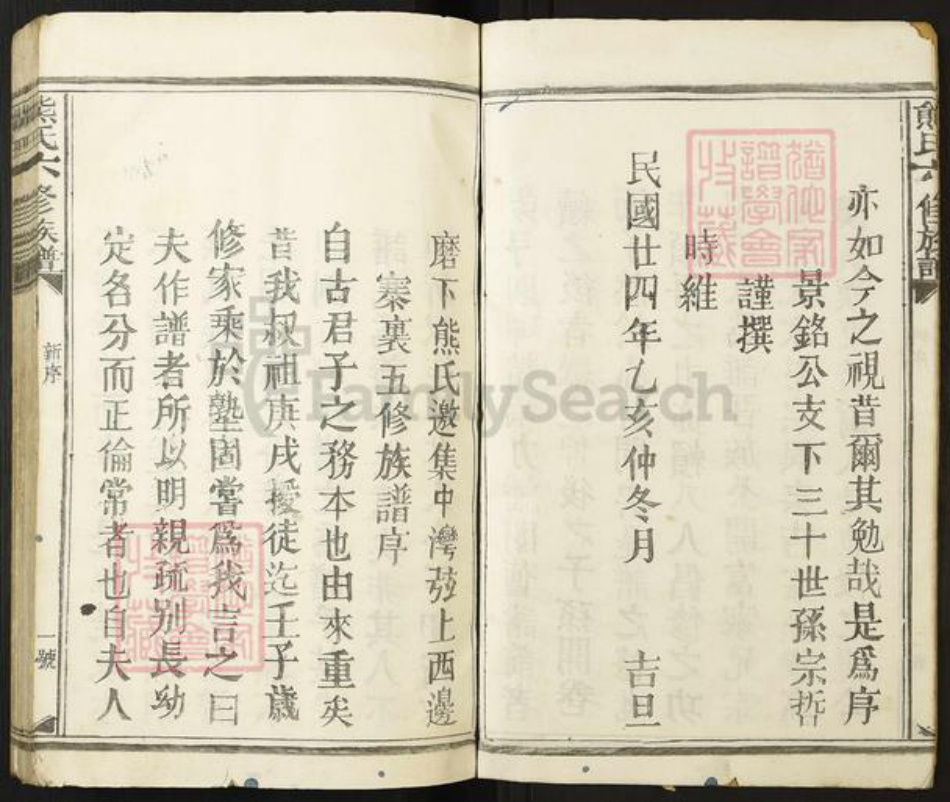 熊氏六修族譜
亦如今之視昔爾其勉哉是爲序
景銘公支下三十世孫宗哲
謹撰
時維
民國廿四年乙亥仲冬月 吉旦
磨下熊氏邀集中灣弦上西邊
寨裏五修族譜序
自古君子之務本也由來重矣
昔我叔祖庚戌授徒迄壬子歲
修家乘於塾固嘗爲我言之曰
夫作譜者所以明親疏別長幼
定名分而正倫常者也自夫人
熊氏六修族譜
新序
一號
FamilySearch